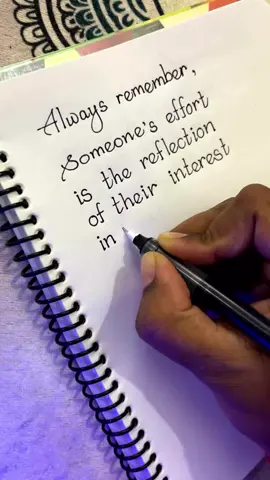 Always remember,
Someone's effort
is the reflection
of their interest
in